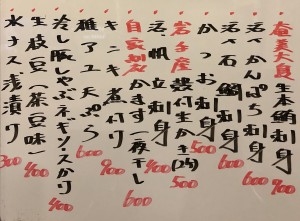 奄美大島 生本鮪刺身 900
活〆かんぱち刺身 600
活〆石鯛刺身 600
かつお刺身 500
岩手産 殻付生かき(2ヶ) 500
活帆立刺身 400
自家製 かます一夜干し 600
キンキ煮付け 900
稚アユ天ぷら 600
冷し豚しゃぶネギソースがけ 400
生枝豆(茶豆味) 400
水ナス浅漬け 300